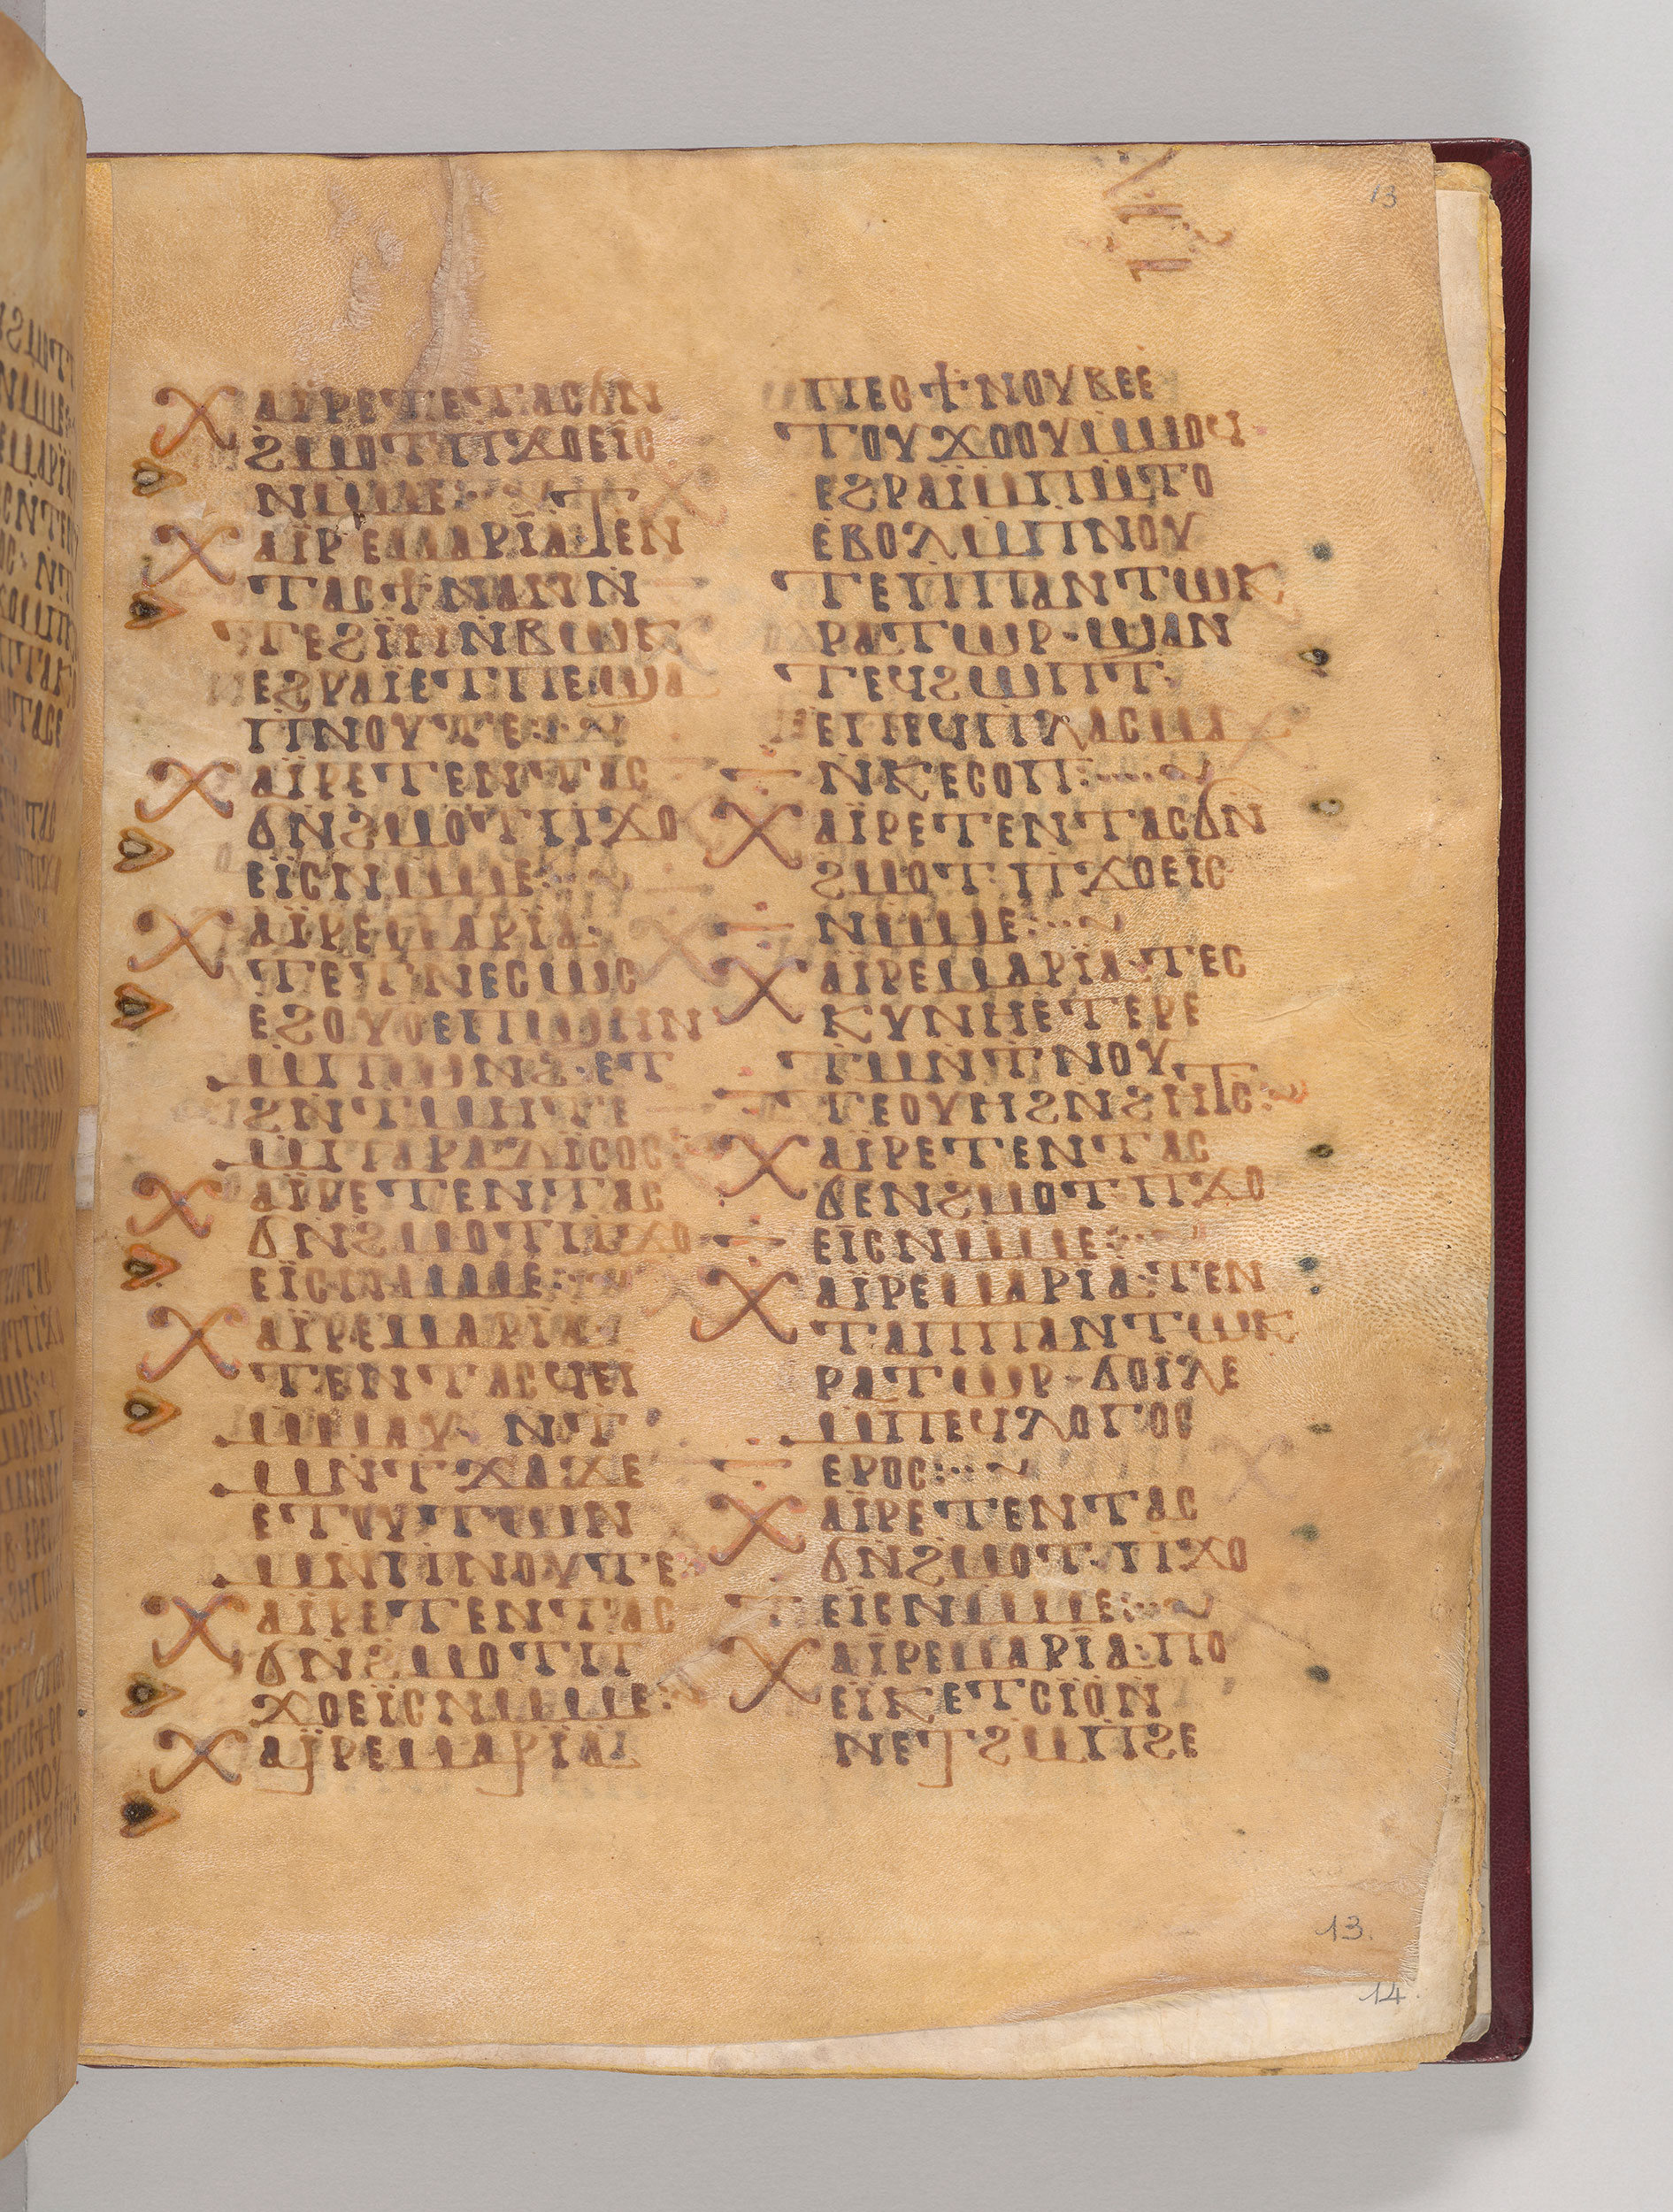 13
ⲭⲁⲓ̈ⲣⲉⲧⲉⲧⲁⲥϭⲛ
ϩⲙⲟⲧ ⲡϫⲟⲉⲓⲥ
ⲛⲙⲙⲉ
ⲭⲁⲓ̈ⲣⲉⲙⲁⲣⲓ̈ⲁⲧⲉⲛ
ⲧⲁⲥϯⲛⲁⲛⲛ
ⲧⲉϩⲓ̈ⲏⲛⲃⲱⲕ
ⲉϩⲣⲁⲓ̈ⲉⲧⲡⲉϣⲁ
ⲡⲛⲟⲩⲧⲉ
ⲭⲁⲓ̈ⲣⲉⲧⲉⲛⲧⲁⲥ
ϭⲛϩⲙⲟⲧ ⲡϫⲟ
ⲉⲓ̈ⲥⲛⲙⲙⲉ
ⲭⲁⲓ̈ⲣⲉⲙⲁⲣⲓ̈ⲁ
ⲧⲉⲧⲛⲉⲥⲱⲥ
ⲉϩⲟⲩⲟⲉⲡϣⲏⲛ
ⲙⲡⲱⲛϩ·ⲉⲧ
ϩⲛⲧⲙⲏⲧⲉ
ⲙⲡⲁⲣⲁⲇⲓⲥⲟⲥ
ⲭⲁⲓ̈ⲣⲉⲧⲉⲛⲧⲁⲥ
ϭⲛϩⲙⲟⲧⲡϫⲟ
ⲉⲓ̈ⲥⲛⲙⲙⲉ
ⲭⲁⲓ̈ⲣⲉⲙⲁⲣⲓ̈ⲁ
ⲧⲉⲛⲧⲁⲥϥⲉⲓ
ⲙⲙⲁⲩ ⲛⲧ
ⲙⲛⲧϫⲁϫⲉ
ⲉⲧⲟⲩⲧⲱⲛ
ⲙⲛⲡⲛⲟⲩⲧⲉ
ⲭⲁⲓ̈ⲣⲉⲧⲉⲛⲧⲁⲥ
ϭⲛϩⲙⲟⲧⲡ
ϫⲟⲉⲓ̈ⲥⲛⲙⲙⲉ
ⲭⲁⲓ̈ⲣⲉⲙⲁⲣⲓ̈ⲁⲧ
ⲡⲉⲥϯⲛⲟⲩⲃⲉⲉ
ⲧⲟⲩϫⲟⲟⲩⲙⲙⲟϥ
ⲉϩⲣⲁⲓ̈ⲙⲡⲙⲧⲟ
ⲉⲃⲟⲗⲙⲡⲛⲟⲩ
ⲧⲉⲡⲡⲁⲛⲧⲱⲕ
ⲣⲁⲧⲱⲣ-ϣⲁⲛ
ⲧⲉϥϩⲱⲧⲡ
ⲉⲡⲉϥⲡⲗⲁⲥⲙⲁ
ⲛⲕⲉⲥⲟⲡ
ⲭⲁⲓ̈ⲣⲉⲧⲉⲛⲧⲁⲥϭⲛ
ϩⲙⲟⲧ ⲡϫⲟⲉⲓⲥ
ⲛⲙⲙⲉ
ⲭⲁⲓ̈ⲣⲉⲙⲁⲣⲓ̈ⲁ·ⲧⲉⲥ
ⲕⲩⲛⲏⲉⲧⲉⲣⲉ
ⲧⲙⲛⲧⲛⲟⲩ
ⲧⲉⲟⲩⲏϩⲛϩⲏⲧⲥ
ⲭⲁⲓ̈ⲣⲉⲧⲉⲛⲧⲁⲥ
ϭⲉⲛϩⲙⲟⲧ ⲡϫⲟ
ⲉⲓ̈ⲥⲛⲙⲙⲉ
ⲭⲁⲓ̈ⲣⲉⲙⲁⲣⲓⲁ·ⲧⲉⲛ
ⲧⲁⲡⲡⲁⲛⲧⲱⲕ
ⲣⲁⲧⲱⲣ-ϭⲟⲓ̈ⲗⲉ
ⲙⲡⲉϥⲗⲟⲅⲟⲥ
ⲉⲣⲟⲥ
ⲭⲁⲓ̈ⲣⲉⲧⲉⲛⲧⲁⲥ
ϭⲛϩⲙⲟⲧ·ⲡϫⲟ
ⲉⲓ̈ⲥⲛⲙⲙⲉ
ⲭⲁⲓ̈ⲣⲉⲙⲁⲣⲓ̈ⲁ·ⲡⲟ
ⲉⲓ̈ⲕⲉⲧⲥⲓ̈ⲟⲛ
ⲛⲉⲧϩⲙⲡϩⲉ
13.
14.